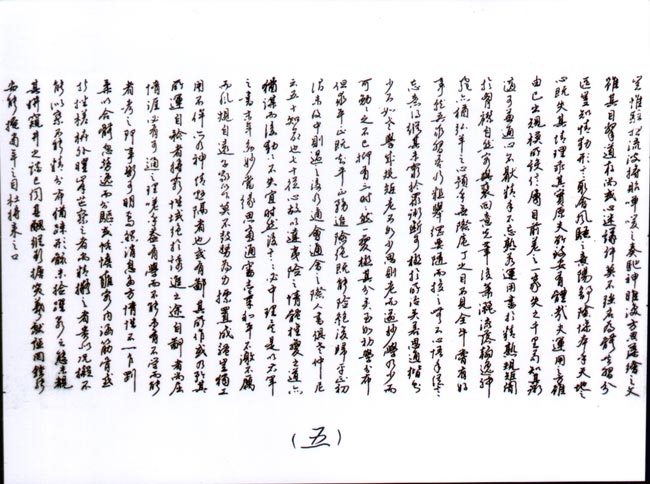 豈惟駐想流波將貽嘽喛之奏馳神睢渙方思藻繪之文
雖其目擊道存尚或心迷議舛莫不強名為體共習分
區豈知情動形言取會風騷之意陽舒陰慘本乎天地之
心既失其情理乖其實原夫所致安有體哉夫運用之方雖
由己出規模所設信屬目前差之一豪失之千里苟知其術
適可兼通心不厭精手不忘熟若運用盡於精熟規矩闇
於胸襟自然容與徘徊意先筆後瀟灑流落翰逸神
飛亦猶弘羊之心預乎無際庖丁之目不見全牛嘗有好
事就吾求習吾乃粗舉綱要隨而授之無不心悟手從言
忘意得縱未窮於眾術斷可極於所詣矣若思通楷則
少不如老學成規矩老不如少思則老而逾妙學乃少而
可勉勉之不已抑有三時時然一變極其分矣至如初學分布
但求平正既知平正務追險絕既能險絕復歸平正初
謂未及中則過之後乃通會通會之際人書俱老仲尼
云五十知命也七十從心故以達夷險之情體權變之道亦
猶謀而後動動不失宜時然後言言必中理矣是以右軍
之書末年多妙當緣思慮通審志氣和平不激不厲
而風規自遠子敬已下莫不鼓努為力標置成體豈獨工
用不侔亦乃神情懸隔者也或有鄙其所作或乃矜其
所運自矜者將窮性域絕於誘進之途自鄙者尚屈
情涯必有可通之理嗟乎蓋有學而不能未有不學而能
者也考之即事斷可明焉然消息多方性情不一乍剛
柔以合體忽勞逸而分驅或恬憺雍容內涵筋骨或
折挫槎枿外曜鋒芒察之者尚精擬之者貴似況擬不
能似察不能精分布猶疏形骸未檢躍泉之態未睹
其妍窺井之談已聞其醜縱欲唐突羲獻誣罔鍾張
安能掩當年之目杜將來之口
(五)